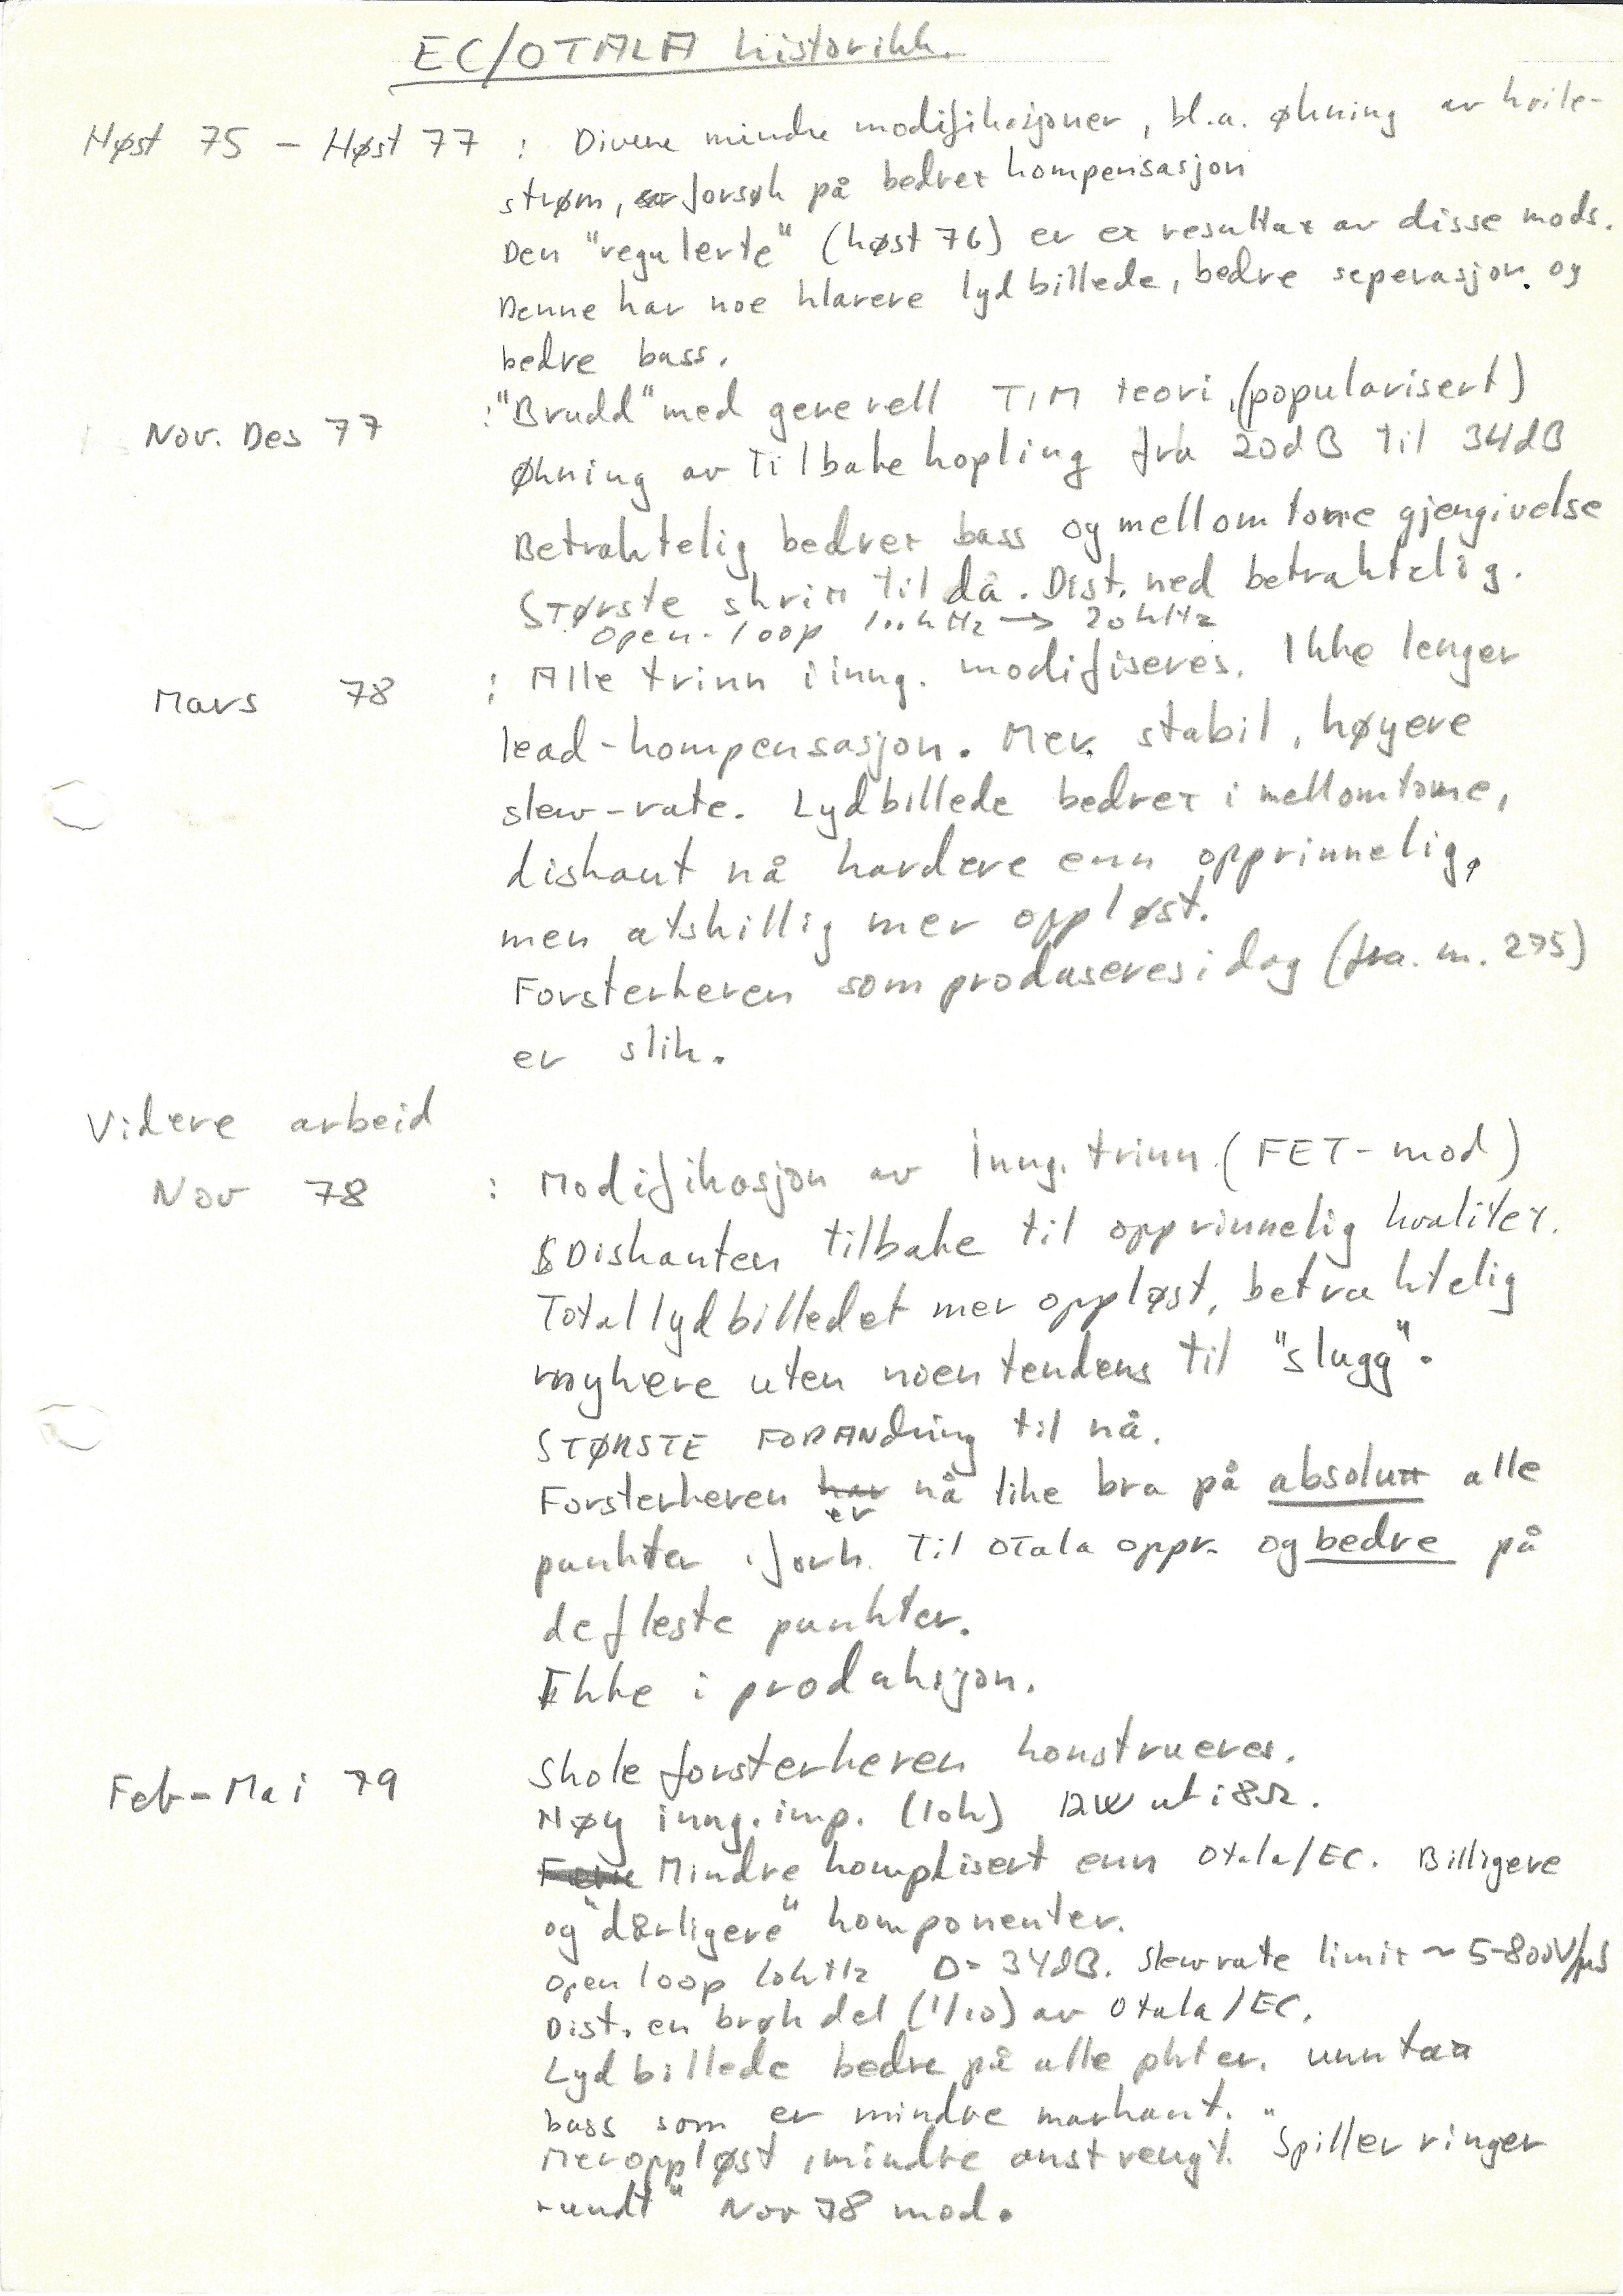 EC/OTALA historikk.
Høst 75 - Høst 77 : Diverse mindre modifikasjoner, bl.a. økning av hvile-
strøm, forsøk på bedret kompensasjon
Den "regulerte" (høst 76) er et resultat av disse mods.
Denne har noe klarere lydbillede, bedre seperasjon og
bedre bass.
Nov. Des 77 : "Brudd" med generell TIM teori, (popularisert)
Økning av Tilbakekopling fra 20dB til 34dB
Betraktelig bedret bass og mellomtone gjengivelse
Største skritt til då. Dist. ned betraktelig.
Open-loop 100kHz → 20kHz
Mars 78 : Alle trinn i inng. modifiseres. Ikke lenger
lead-kompensasjon. Mer stabil, høyere
slew-rate. Lydbillede bedret i mellomtone,
diskant nå hardere enn opprinnelig,
men atskillig mer oppløst.
Forsterkeren som produseres i dag (fra. m. 275)
er slik.
Videre arbeid
Nov 78 : Modifikasjon av Inng. trinn. (FET-mod)
Diskanten tilbake til opprinnelig kvalitet.
Total lydbilledet mer oppløst, betraktelig
mykere uten noen tendens til "slugg".
STØRSTE FORANdring til nå.
Forsterkeren har er nå like bra på absolutt alle
punkter i forh. Til OTala oppr. og bedre på
de fleste punkter.
Ikke i produksjon.
Feb-Mai 79 Skoleforsterkeren konstrueres.
Høy inng. imp. (10k) 12W ut i 8Ω.
Mindre komplisert enn Otala/EC. Billigere
og "dårligere" komponenter.
Open loop 60kHz D= 34dB. Slewrate limit ~ 5-800V/µs
Dist. en brøkdel (1/10) av Otala/EC.
Lydbillede bedre på alle pkter. unntatt
bass som er mindre markant.
Mer oppløst, mindre anstrengt. "Spiller ringer
rundt" Nov 78 mod.